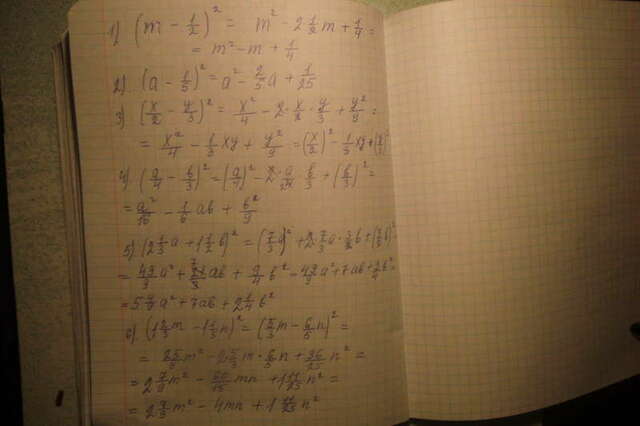 1) (m - 1/2)² = m² - 2 1/2 m + 1/4 =
= m² - m + 1/4
2) (a - 1/5)² = a² - 2/5 a + 1/25
3) (x/2 - y/3)² = x²/4 - 2·x/2·y/3 + y²/9 =
= x²/4 - 1/3 xy + y²/9 = (x/2)² - 1/3 xy + (y/3)²
4) (a/4 - b/3)² = (a/4)² - 2·a/4 b/3 + (b/3)² =
= a²/16 - 1/6 ab + b²/9
5) (2 1/3 a + 1 1/2 b)² = (7/3 a)² + 2·7/3 a·3/2 b + (3/2 b)² =
= 49/9 a² + ab + 9/4 b² = 49/9 a² + 7ab + 9/4 b² =
= 5 4/9 a² + 7ab + 2 1/4 b²
6) (1 2/3 m - 1 1/5 n)² = (5/3 m - 6/5 n)² =
= 25/9 m² - 2 5/3 m · 6/5 n + 36/25 n² =
= 2 7/9 m² - 60/15 mn + 1 11/25 n² =
= 2 7/9 m² - 4mn + 1 11/25 n²